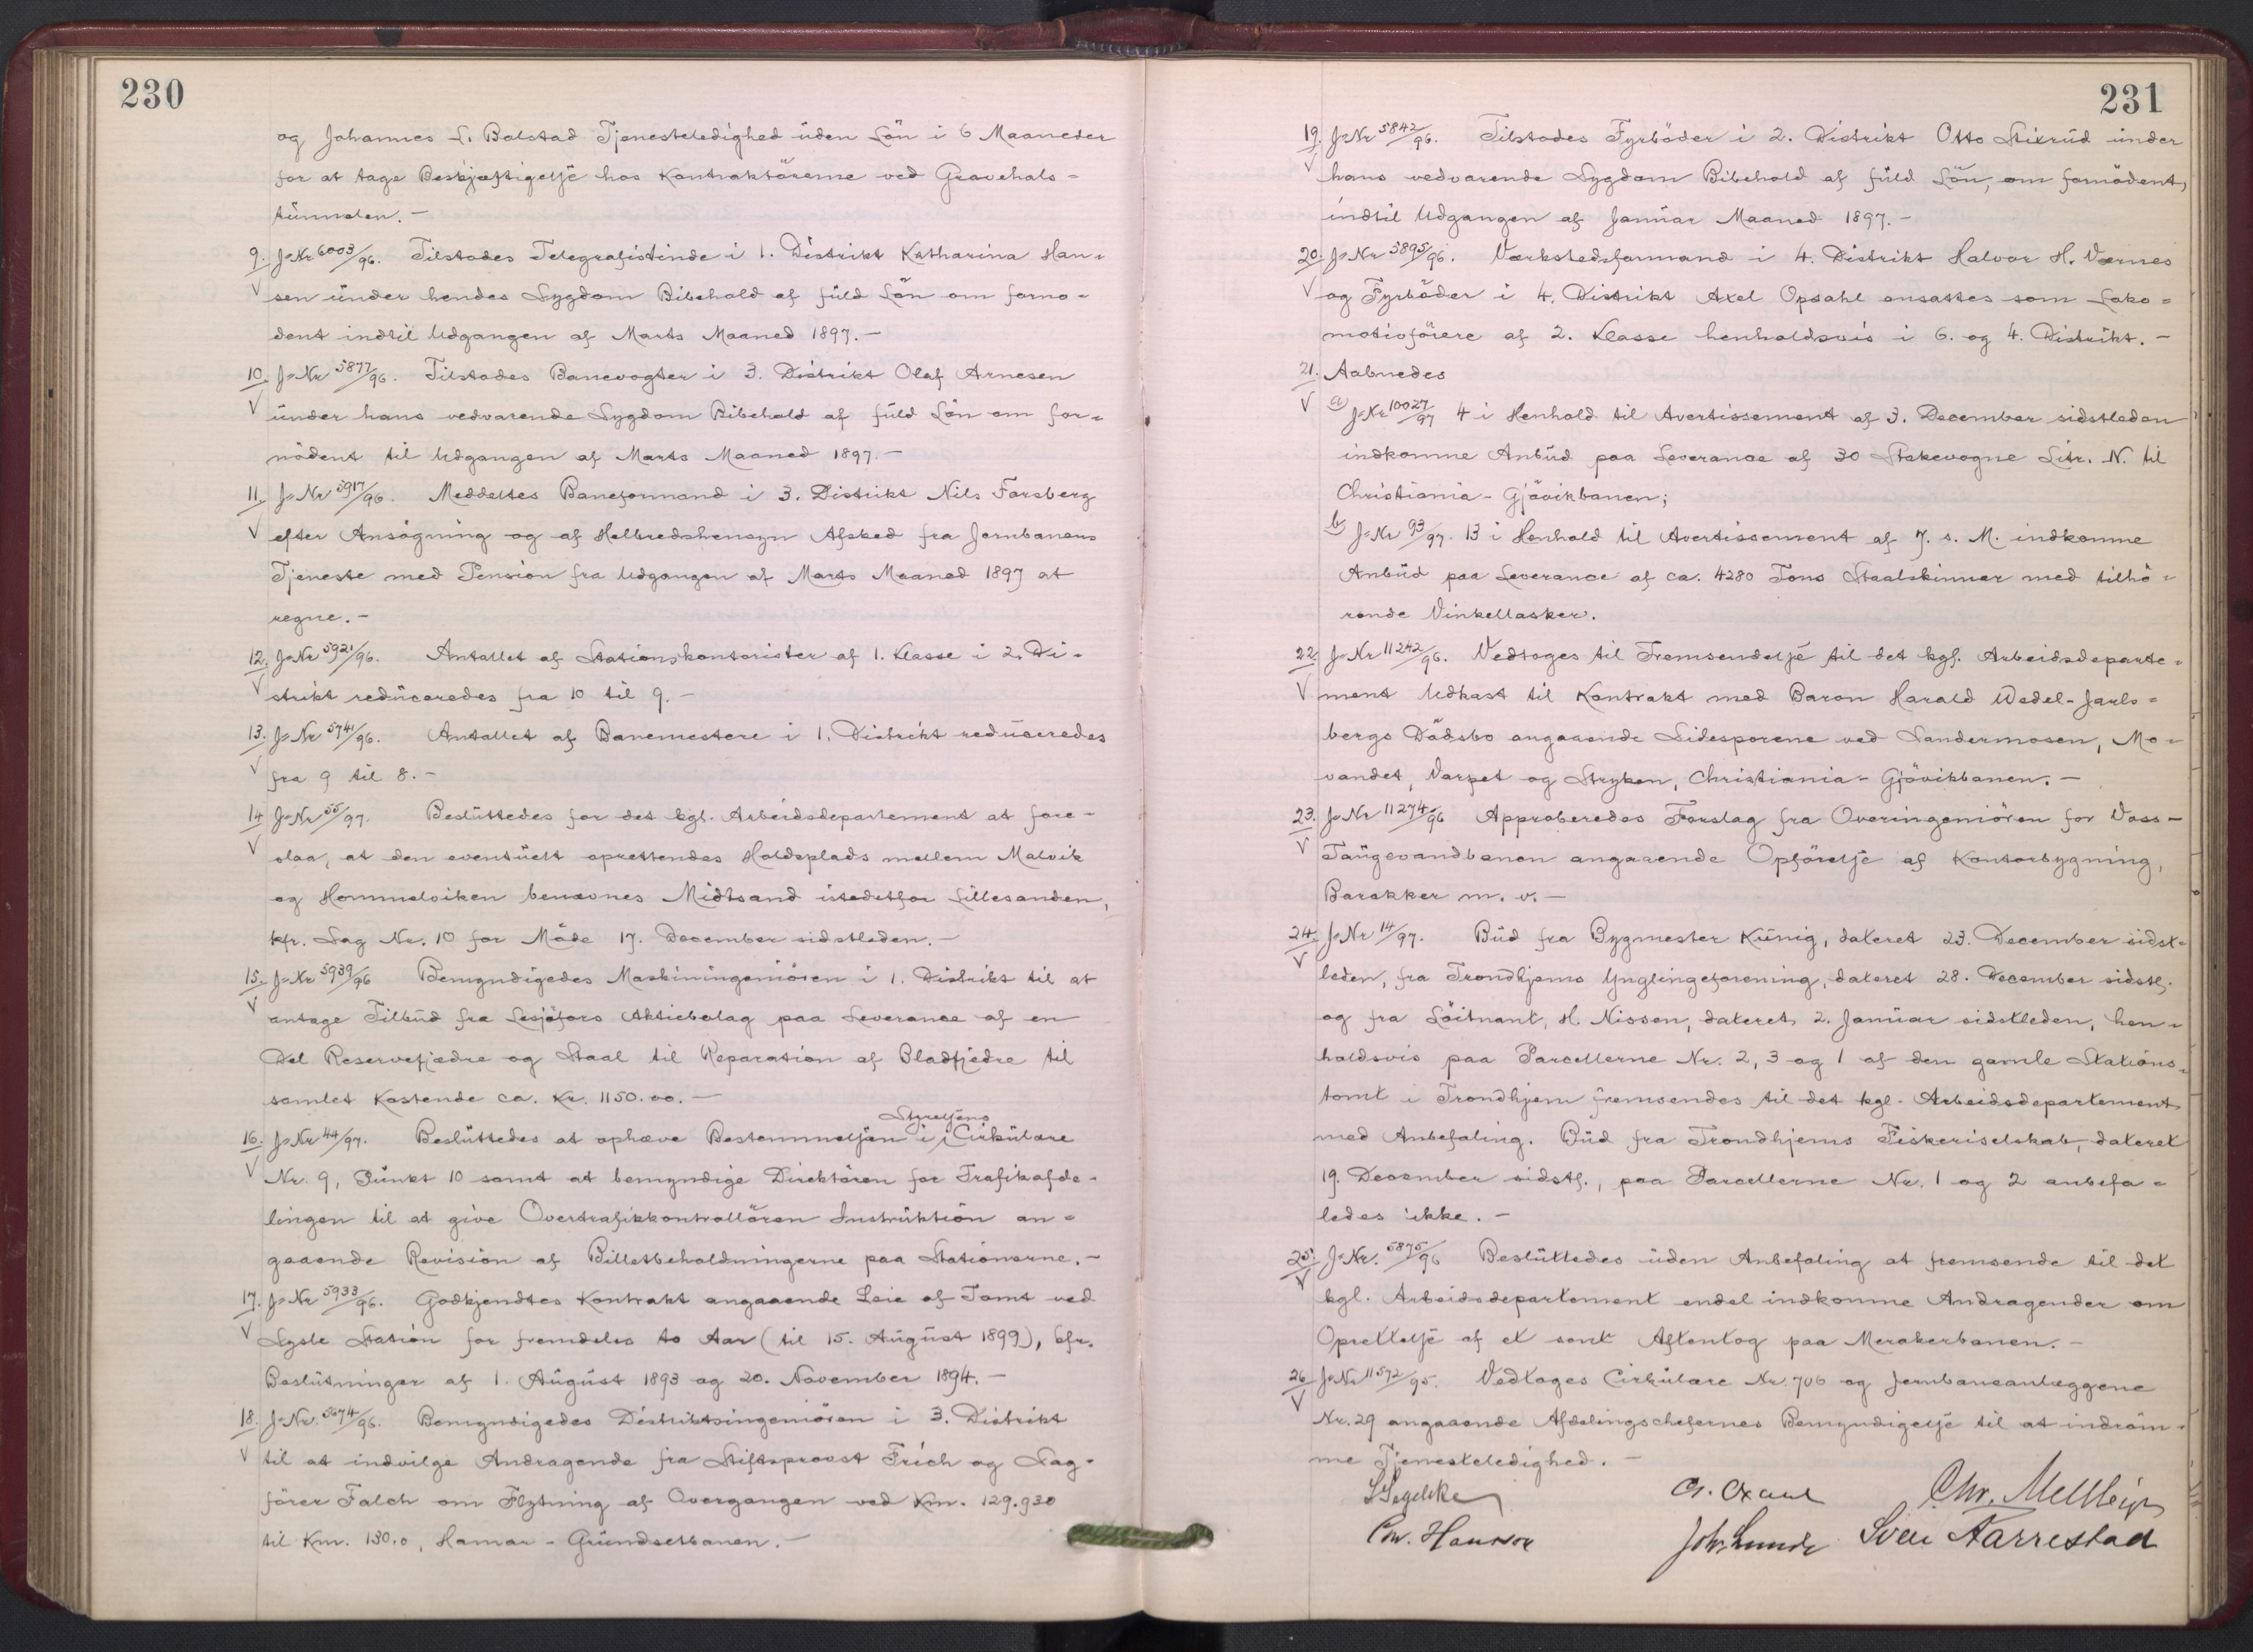 230
og Johannes L. Bolstad Tjenesteledighed uden Lön i 6 Maaneder
for at tage Beskjæftigelse hos Kontraktörerne ved Gravehals-
tunnelen. -
9. J-Nr 6003/96. Tilstodes Telegrafistinde i 1. Distrikt Katharina Han-
V sen under hendes Sygdom Bibehold af fuld Lön om forno-
dent indtil Udgangen af Marts Maaned 1897. -
10. J-Nr 5877/96. Tilstodes Banevogter i 3. Distrikt Olaf Arnesen
V under hans vedvarende Sygdom Bibehold af fuld Lön om for-
nödent til Udgangen af Marts Maaned 1897. -
11. J-Nr 5917/96. Meddeltes Baneformand i 3. Distrikt Nils Forsberg
V efter Ansögning og af Helbredshensyn Afsked fra Jernbanens
Tjeneste med Pension fra Udgangen af Marts Maaned 1897 at
regne. -
12. J-Nr 5921/96. Antallet af Stationskontorister af 1. Klasse i 2. Di-
V strikt reduceredes fra 10 til 9. -
13. J-Nr 5741/96. Antallet af Banemestere i 1. Distrikt reduceredes
V fra 9 til 8. -
14 J-Nr 55/97. Besluttedes for det kgl. Arbeidsdepartement at fore-
V slaa, at den eventuelt oprettendes Holdeplads mellem Malvik
og Hommelviken benævnes Midtsand istedetfor Lillesanden,
kfr. Sag Nr. 10 for Möde 17. December sidstleden. -
15. J-Nr 5939/96 Bemyndigedes Maskiningeniören i 1. Distrikt til at
V antage Tilbud fra Lesjöfors Aktiebolag paa Leverance af en
Del Reservefjædre og Staal til Reparation af Bladfjedre til
samlet Kostende ca. Kr. 1150.00. -
Styrelsens
16. J-Nr 44/97. Besluttedes at ophæve Bestemmelsen i Cirkulære
V Nr. 9, Punkt 10 samt at bemyndige Direktören for Trafikafde-
lingen til at give Overtrafikkontrollören Instruktion an-
gaaende Revision af Billetbeholdningerne paa Stationerne. -
17. J-Nr 5933/96. Godkjendtes Kontrakt angaaende Leie af Tomt ved
V Lysle Station for fremdeles to Aar (til 15. August 1899), kfr.
Beslutninger af 1. August 1893 og 20. November 1894. -
18. J-Nr. 5674/96. Bemyndigedes Distriktsingeniören i 3. Distrikt
V til at indvilge Andragende fra Stiftsprovst Frich og Sag-
förer Falch om Flytning af Overgangen ved Km. 129.930
til Km. 130.0, Hamar - Grundsetbanen. -
231
19. J-Nr 5842/96. Tilstodes Fyrböder i 2. Distrikt Otto Stixrud under
V hans vedvarende Sygdom Bibehold af fuld Lön, om fornödent,
indtil Udgangen af Januar Maaned 1897. -
20. J-Nr 5895/96. Værkstedsformand i 4. Distrikt Halvor H. Værnes
V og Fyrböder i 4. Distrikt Axel Opsahl ansattes som Loko-
motivförere af 2. Klasse henholdsvis i 6. og 4. Distrikt. -
21. Aabnedes
V a) J-Nr 10027/97 4 i Henhold til Avertissement af 3. December sidstleden
indkomne Anbud paa Leverance af 30 Stakevogne Litr. N. til
Christiania - Gjövikbanen;
b) J-Nr 93/97. 13 i Henhold til Avertissement af 7. s. M. indkomne
Anbud paa Leverance af ca. 4280 Tons Staalskinner med tilhö-
rende Vinkellasker.
22. J-Nr 11242/96. Vedtoges til Fremsendelse til det kgl. Arbeidsdeparte-
V ment Udkast til Kontrakt med Baron Harald Wedel-Jarls-
bergs Dödsbo angaaende Sidesporene ved Sandermosen, Mo-
vandet, Varpet og Stryken, Christiania - Gjövikbanen. -
23. J-Nr 11274/96 Approberedes Forslag fra Overingeniören for Voss-
V Taugevandbanen angaaende Opförelse af Kontorbygning,
Barakker m. v. -
24. J-Nr 14/97. Bud fra Bygmester Kunig, dateret 23. December sidst-
V leden, fra Trondhjems Ynglingeforening, dateret 28. December sidstl.
og fra Löitnant, H. Nissen, dateret 2. Januar sidstleden, hen-
holdsvis paa Parcellerne Nr. 2, 3 og 1 af den gamle Stations-
tomt i Trondhjem fremsendes til det kgl. Arbeidsdepartement
med Anbefaling. Bud fra Trondhjems Fiskeriselskab, dateret
19. December sidstl., paa Parcellerne Nr. 1 og 2 anbefa-
ledes ikke. -
25. J-Nr. 5875/96 Besluttedes uden Anbefaling at fremsende til det
V kgl. Arbeidsdepartement endel indkomne Andragender om
Oprettelse af et sent Aftentog paa Merakerbanen. -
26 J-Nr 11572/95. Vedtoges Cirkulære Nr. 706 og Jernbaneanlæggene
V Nr. 29 angaaende Afdelingschefernes Bemyndigelse til at indröm-
me Tjenesteledighed. -
S Segelcke Chr. Mellbÿe
Chr. Hansson Joh. Lunde Sven Aarrestad